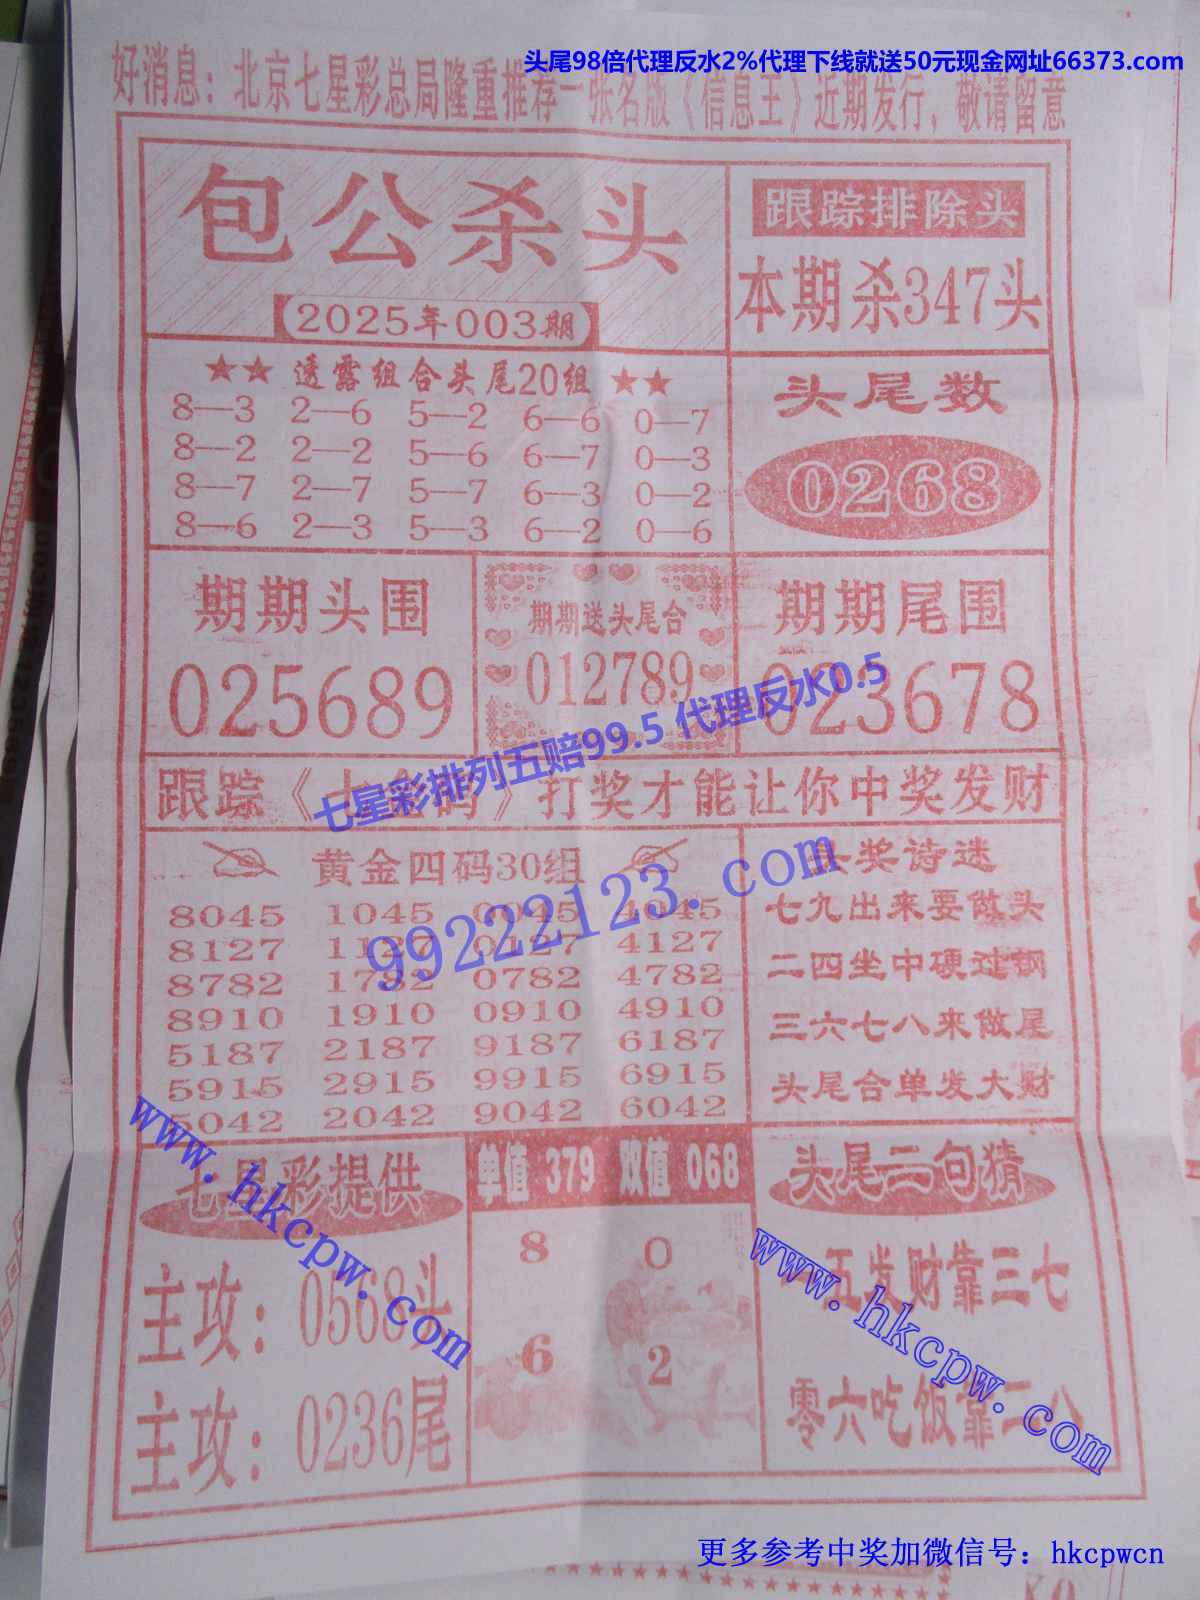 头尾98倍代理反水2%代理下线就送50元现金网址66373.com
好消息：北京七星彩总局隆重推荐一张名版《信息王》近期发行，敬请留意
包公杀头
2025年003期
跟踪排除头
本期杀347头
★★ 透露组合头尾20组 ★★
8—3 2—6 5—2 6—6 0—7
8—2 2—2 5—6 6—7 0—3
8—7 2—7 5—7 6—3 0—2
8—6 2—3 5—3 6—2 0—6
头尾数
0268
期期头围
025689
期期送头尾合
012789
期期尾围
023678
七星彩排列五赔99.5 代理反水0.5
跟踪《 》打奖才能让你中奖发财
黄金四码30组
8045 1045 0045 4045
8127 1127 0127 4127
8782 1782 0782 4782
8910 1910 0910 4910
5187 2187 9187 6187
5915 2915 9915 6915
5042 2042 9042 6042
99222123.com
奖诗迷
七九出来要做头
二四坐中硬过钢
三六七八来做尾
头尾合单发大财
www.hkcpw.com
七星彩提供
主攻：0568头
主攻：0236尾
单值 379 双值 068
8 0
6 2
头尾二句猜
五发财靠三七
零六吃饭靠二八
www.hkcpw.com
更多参考中奖加微信号：hkcpwcn